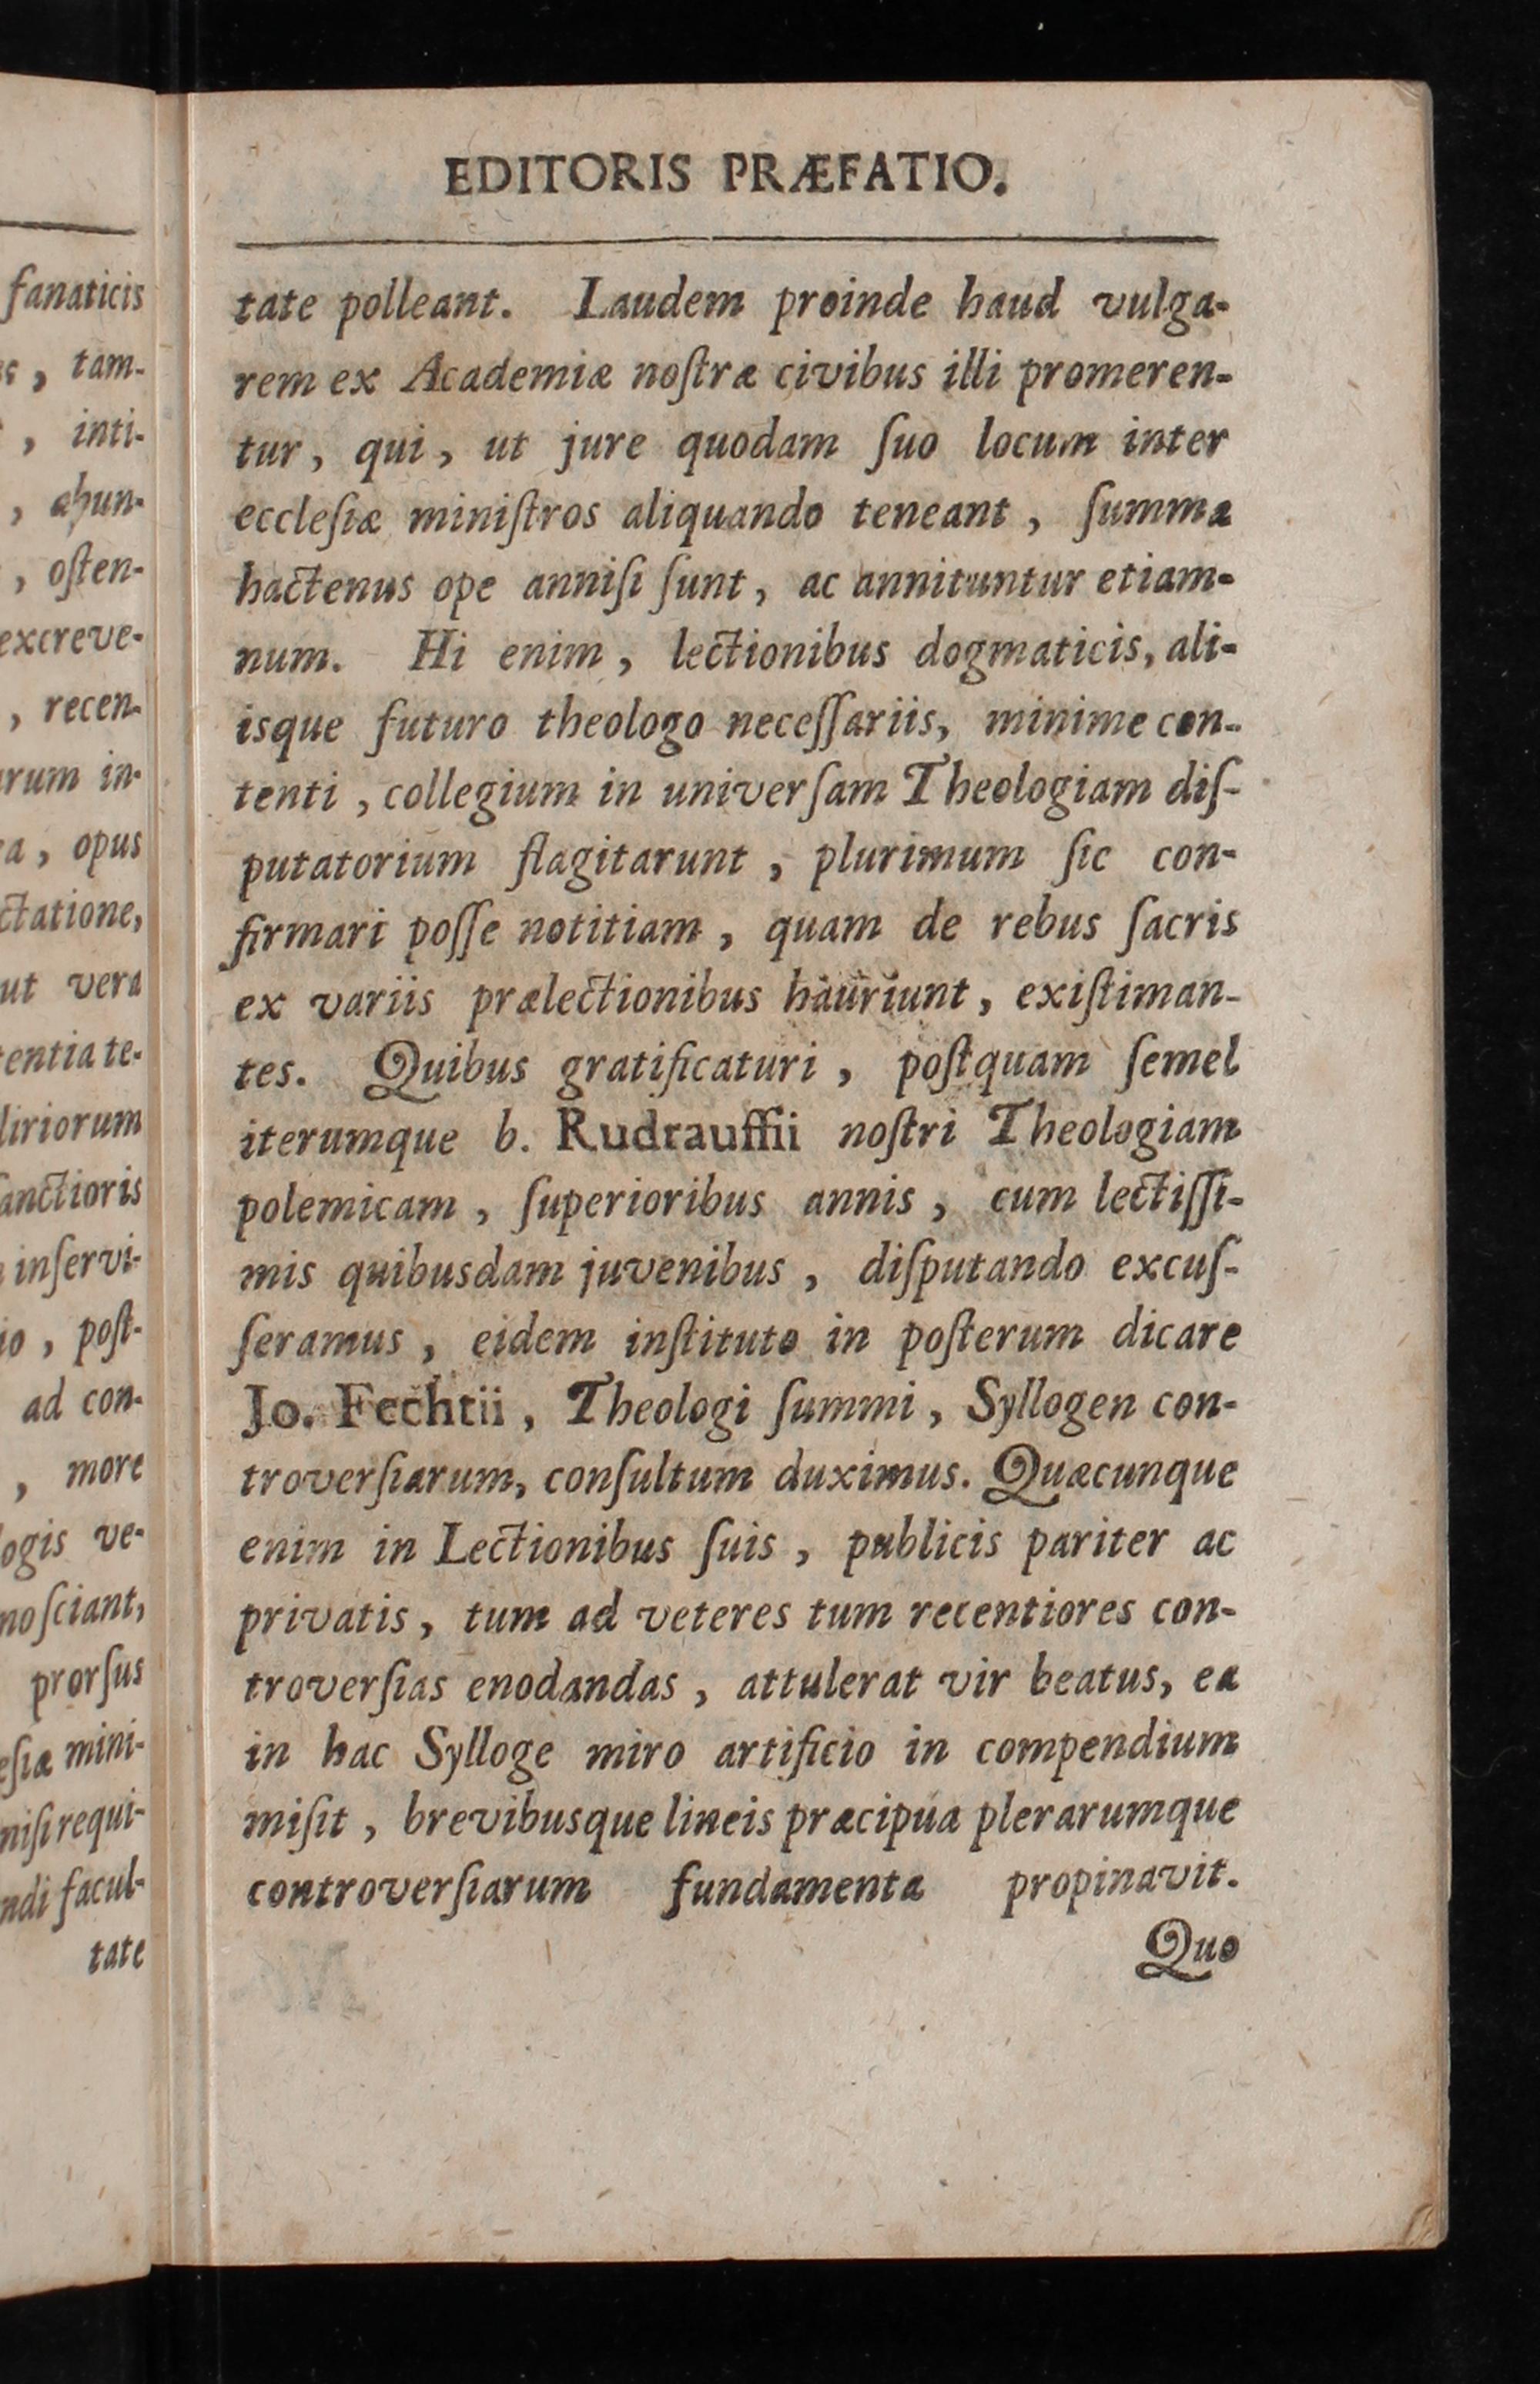 EDITORIS PRÆFATIO.
tate polleant. Laudem proinde haud vulga-
rem ex Academiæ noſtræ civibus illi promeren-
tur, qui, ut jure quodam ſuo locum inter
eccleſiæ miniſtros aliquando teneant, ſumma
hactenus ope anniſi ſunt, ac annituntur etiam-
num. Hi enim, lectionibus dogmaticis, ali-
isque futuro theologo neceſſariis, minime con-
tenti, collegium in univerſam Theologiam diſ-
putatorium flagitarunt, plurimum ſic con-
firmari poſſe notitiam, quam de rebus ſacris
ex variis prælectionibus hauriunt, exiſtiman-
tes. Quibus gratificaturi, poſtquam ſemel
iterumque b. Rudrauffii noſtri Theologiam
polemicam, ſuperioribus annis, cum lectiſſi-
mis quibusdam juvenibus, diſputando excuſ-
ſeramus, eidem inſtituto in poſterum dicare
Jo. Fechtii, Theologi ſummi, Syllogen con-
troverſiarum, conſultum duximus. Quæcunque
enim in Lectionibus ſuis, publicis pariter ac
privatis, tum ad veteres tum recentiores con-
troverſias enodandas, attulerat vir beatus, ea
in hac Sylloge miro artificio in compendium
miſit, brevibusque lineis præcipua plerarumque
controverſiarum fundamenta propinavit.
Quo
fanaticis
, tam-
, inti-
, abun-
, oſten-
excreve-
, recen-
rum in-
a, opus
ctatione,
ut vera
tentia te-
liriorum
ſanctioris
inſervi-
io, poſt-
ad con-
, more
logis ve-
noſciant,
prorſus
eſiæ mini-
niſi requi-
ndi facul-
tate